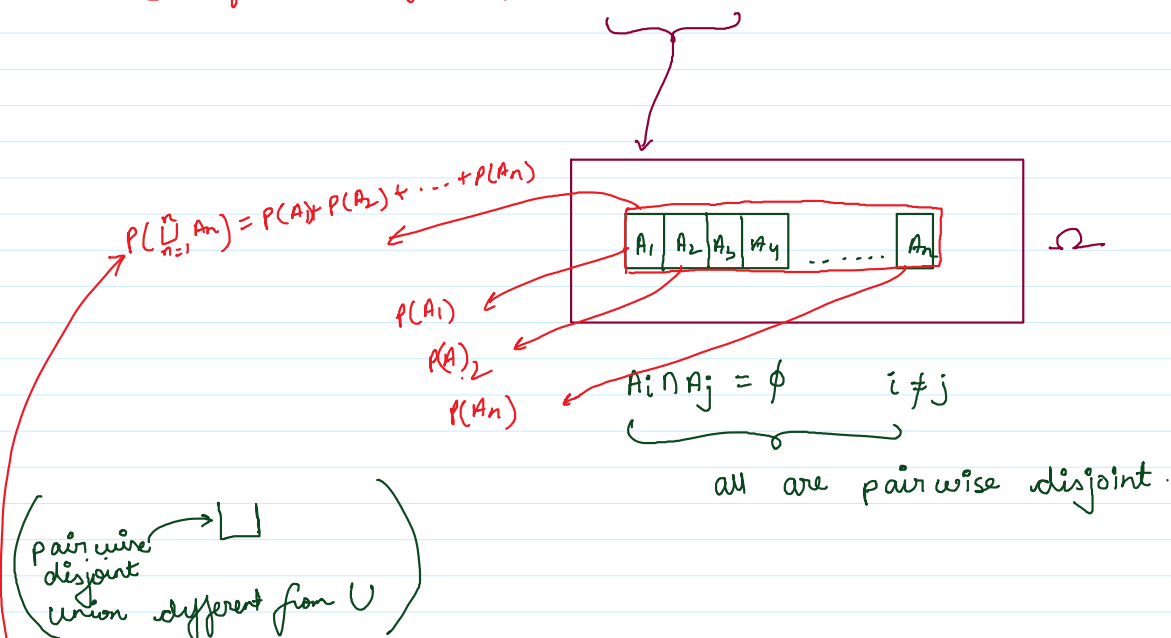 P(⊔ₙ₌₁ⁿ Aₙ) = P(A)+ P(A₂) + .... + P(Aₙ)
A₁ A₂ A₃ A₄ ....... Aₙ Ω
P(A₁)
P(A)₂
P(Aₙ)
Ai ∩ Aj = ϕ i ≠ j
all are pairwise disjoint.
pairwise ⊔
disjoint
union different from U